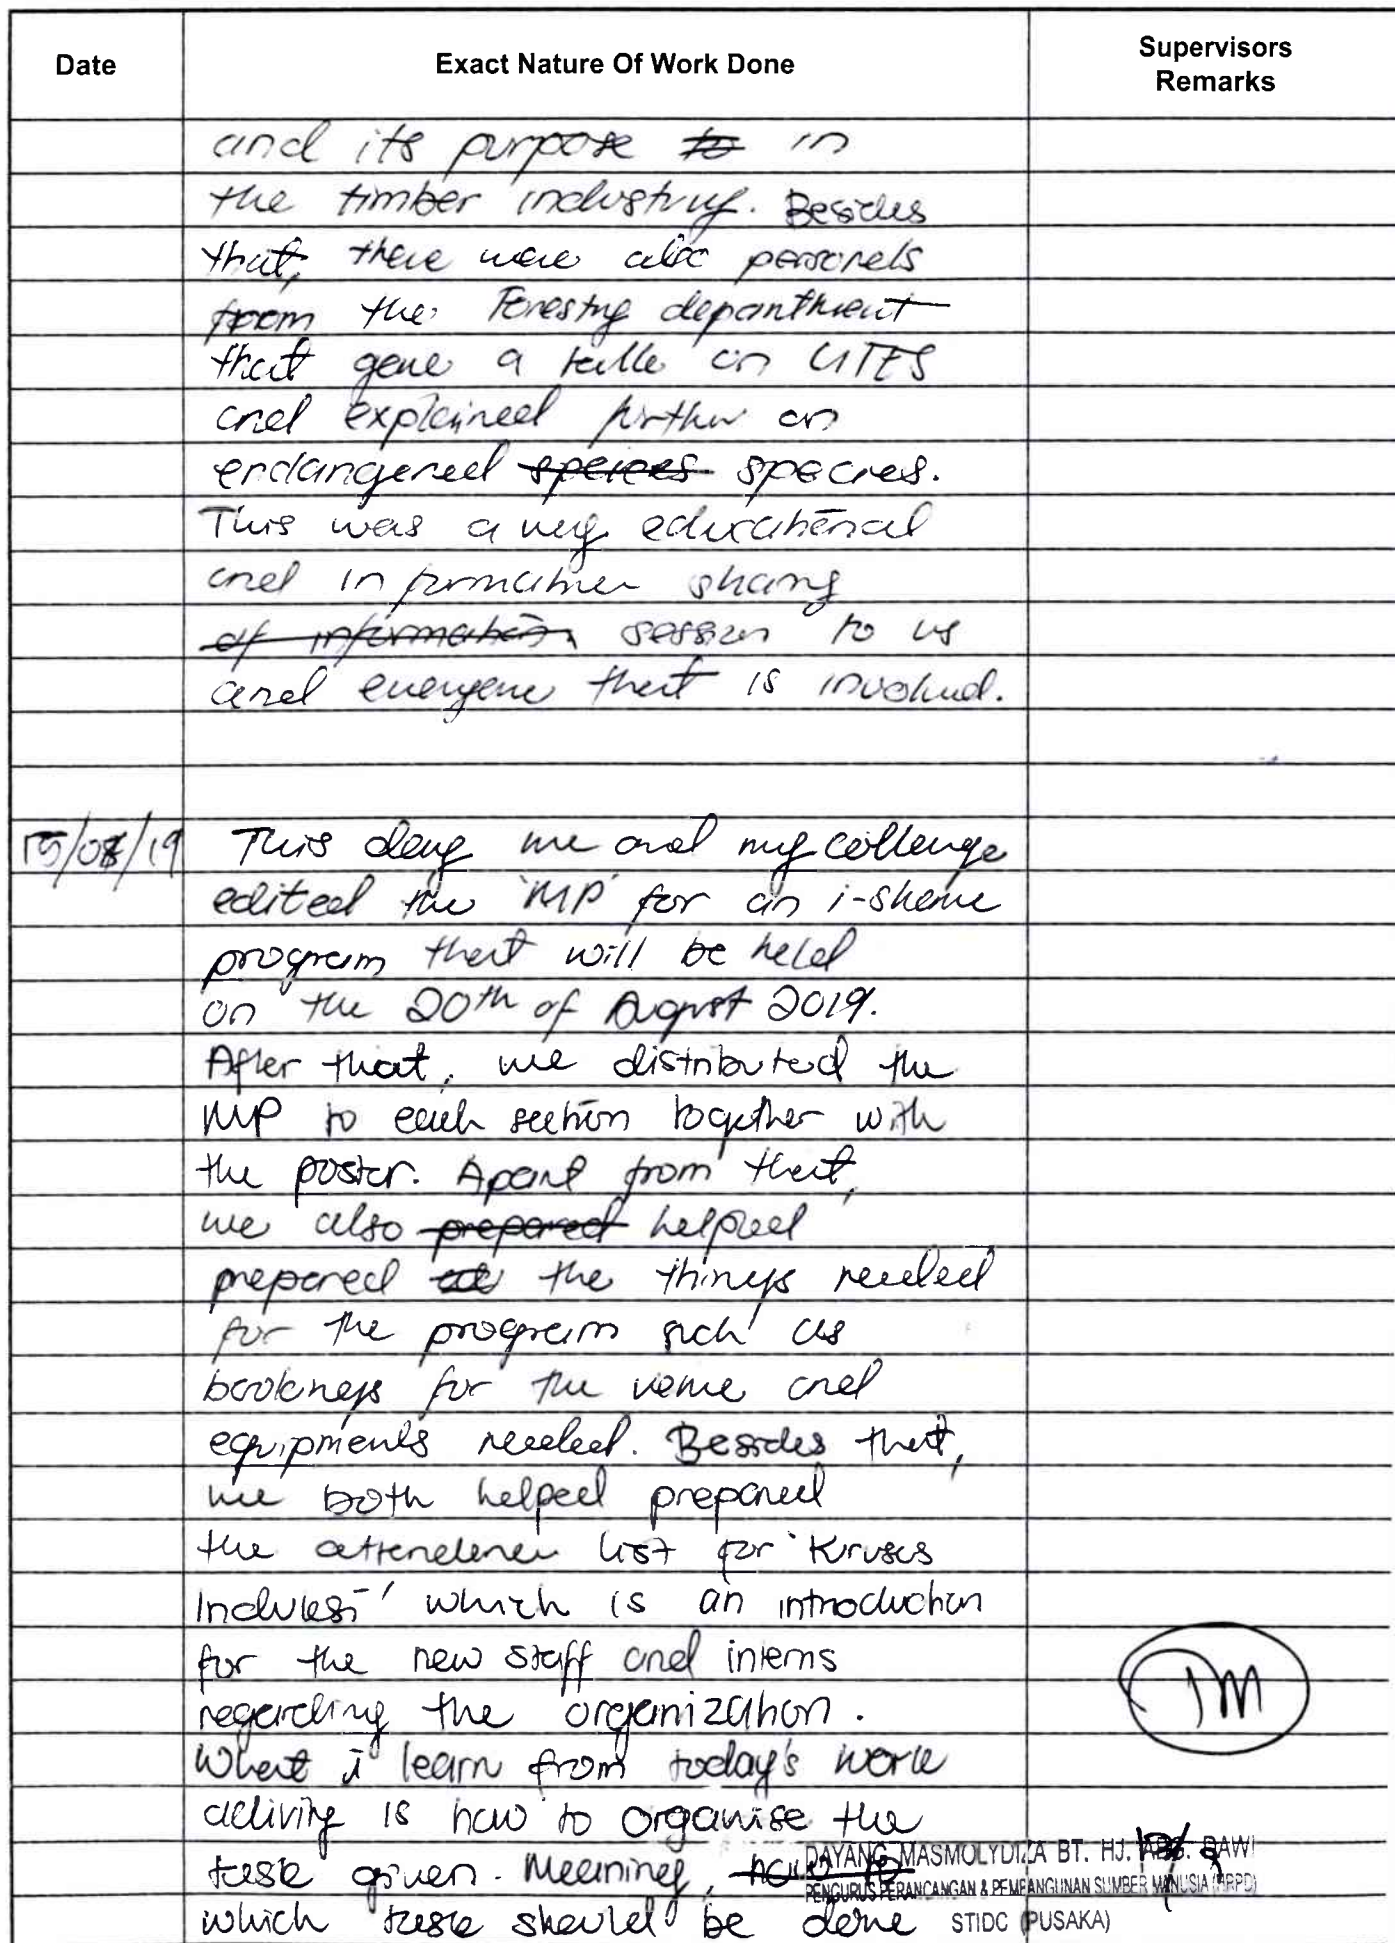 Date
Exact Nature Of Work Done
Supervisors
Remarks
and its purpose to in
the timber industry. Besides
that, there were also personels
from the Forestry department
that gave a talk on CITES
and explained further on
endangered species species.
This was a very educational
and information sharing
of information session to us
and everyone that is involved.
15/08/19 This day me and my colleage
edited the 'MP' for an i-sheme
program that will be held
on the 20th of August 2019.
After that, we distributed the
MP to each section together with
the poster. Apart from that,
we also prepared helped
prepared the things needed
for the program such as
bookings for the venue and
equipments needed. Besides that,
we both helped prepared
the attendence list for 'Kursus
Induksi' which is an introduction
for the new staff and interns
regarding the organization.
What i learn from today's work
activity is how to organise the
task given. Meaning, how to
which task should be done
DAYANG MASMOLYDIZA BT. HJ. ABG. DAWI
PENGURUS PERANCANGAN & PEMBANGUNAN SUMBER MANUSIA (HRPD)
STIDC (PUSAKA)